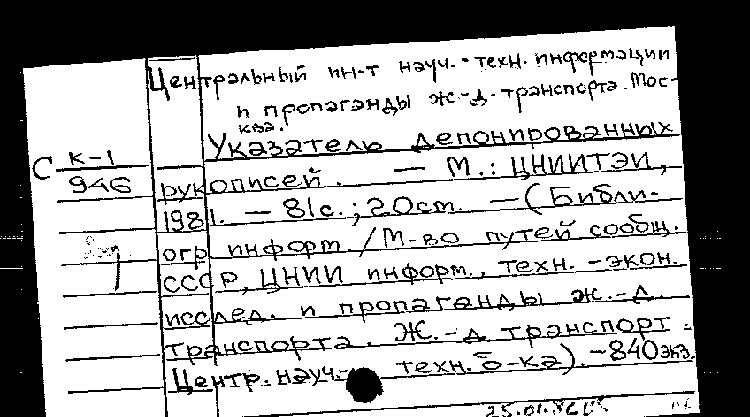 Центральный ин-т науч.-техн. информации
и пропаганды ж.-д. транспорта. Мос-
ква.
Указатель депонированных
С К-1
946
рукописей. — М.: ЦНИИТЭИ,
1981. — 81с.; 20см. — (Библи-
огр информ. / М-во путей сообщ.
СССР, ЦНИИ информ., техн.-экон.
исслед. и пропаганды ж.-д.
транспорта. Ж.-д транспорт.
Центр. науч.- техн. б-ка). -840экз.